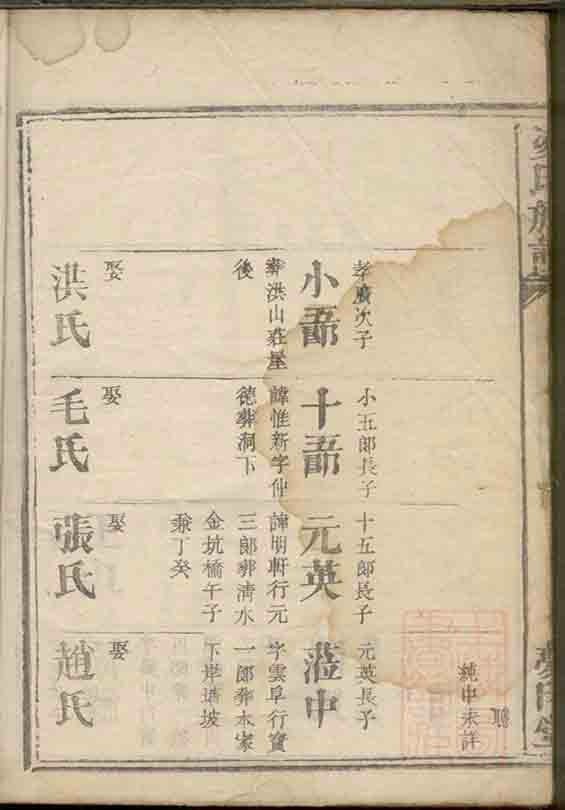 氏族譜
純中未詳
孝廣次子
小五郎
葬洪山莊屋
後
娶
洪氏
小五郎長子
十五郎
諱惟新字仲
德葬洞下
娶
毛氏
十五郎長子
元英
諱明軒行元
三郎葬清水
金坑橋午子
兼丁癸
娶
張氏
元英長子
中
字雲阜行寶
一郎葬木家
下岸塔坡
娶
趙氏